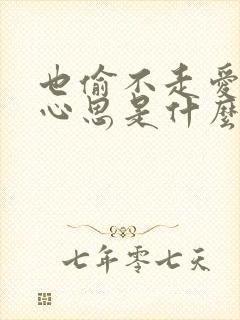 也偷不走愛
心思是什麼
七年零七天